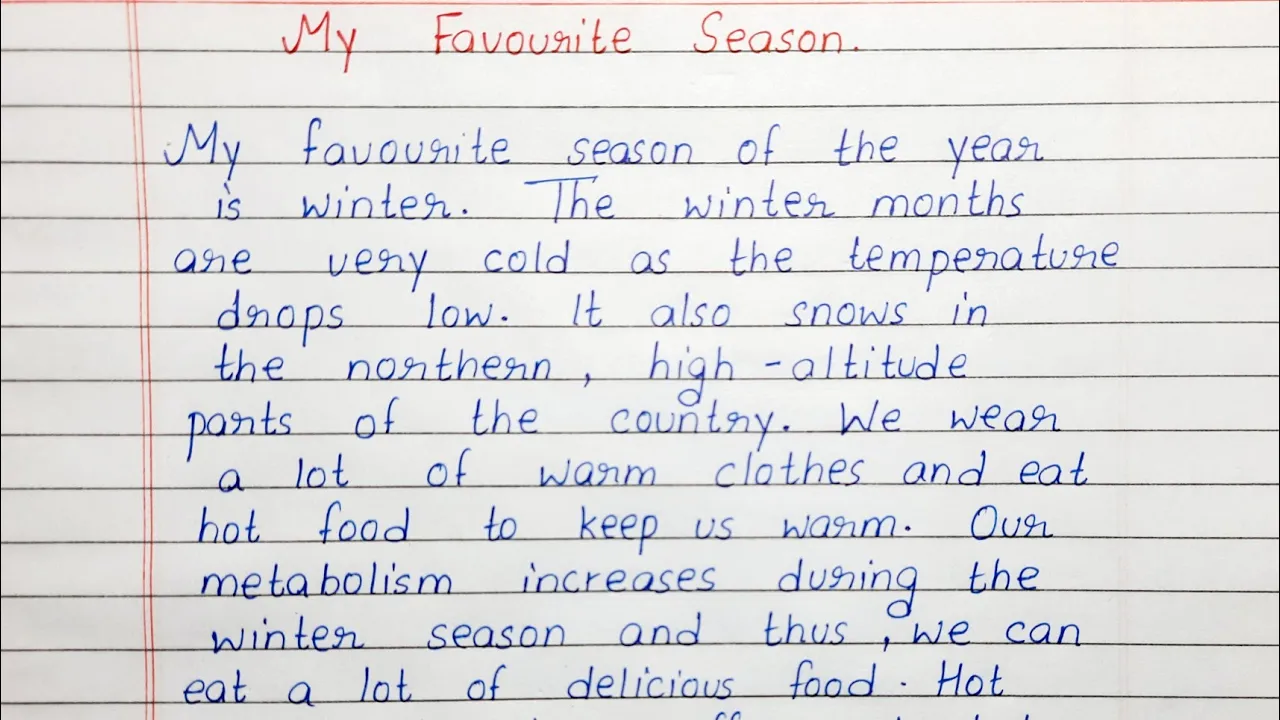 My Favourite Season.
My favourite season of the year
is winter. The winter months
are very cold as the temperature
drops low. It also snows in
the northern, high-altitude
parts of the country. We wear
a lot of warm clothes and eat
hot food to keep us warm. Our
metabolism increases during the
winter season and thus, we can
eat a lot of delicious food. Hot